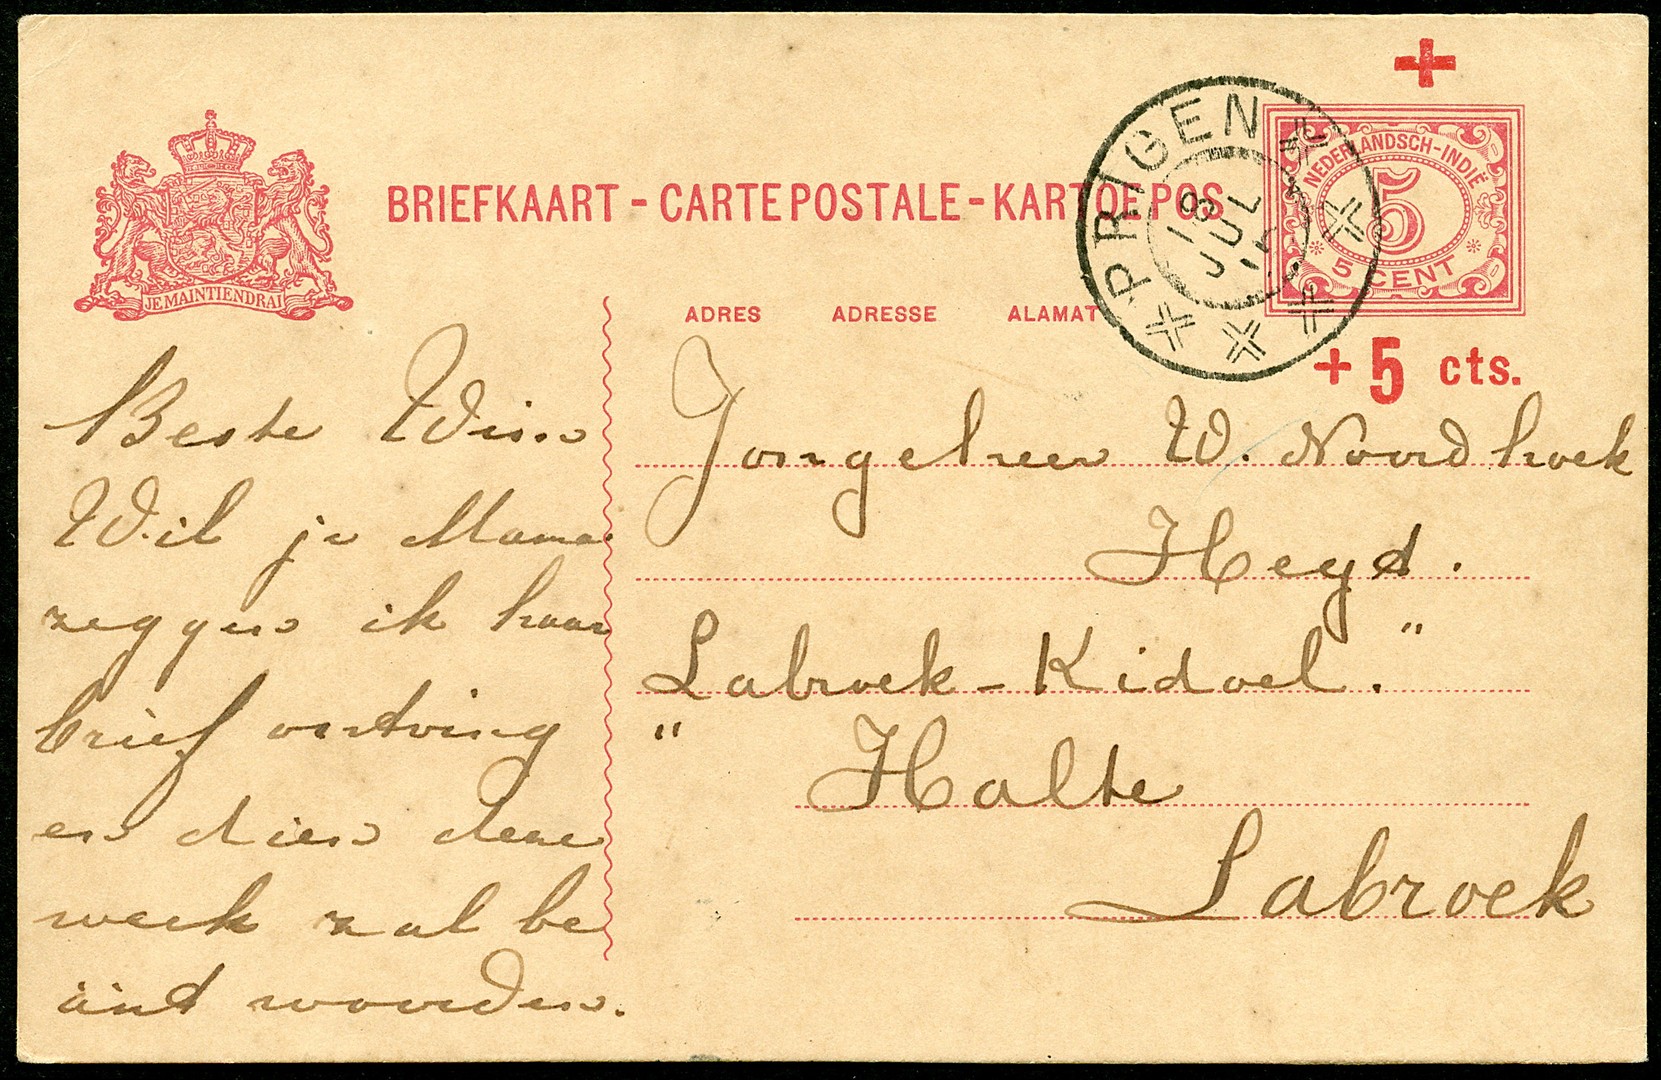 +
NEDERLANDSCH-INDIË
5
5 CENT
PRIGEN
18
JUL
BRIEFKAART - CARTE POSTALE - KARTOE POS
JE MAINTIENDRAI
ADRES ADRESSE ALAMAT
+ 5 cts.
Beste Wim
Wil je Mama
zeggen ik haar
brief ontving
en dien deze
week zal be
antwoorden.
Jongeheer W. Noordhoek
Hegt.
„Labroek-Kidoel."
Halte
Labroek